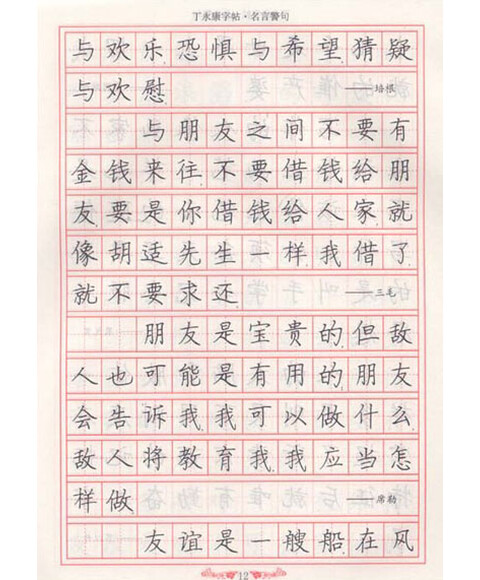 丁永康字帖·名言警句
与欢乐恐惧与希望猜疑
与欢慰 ——培根
与朋友之间不要有
金钱来往,不要借钱给朋
友,要是你借钱给人家就
像胡适先生一样,我借了
就不要求还. ——三毛
朋友是宝贵的,但敌
人也可能是有用的,朋友
会告诉我,我可以做什么,
敌人将教育我,我应当怎
样做. ——席勒
友谊是一艘船,在风
12